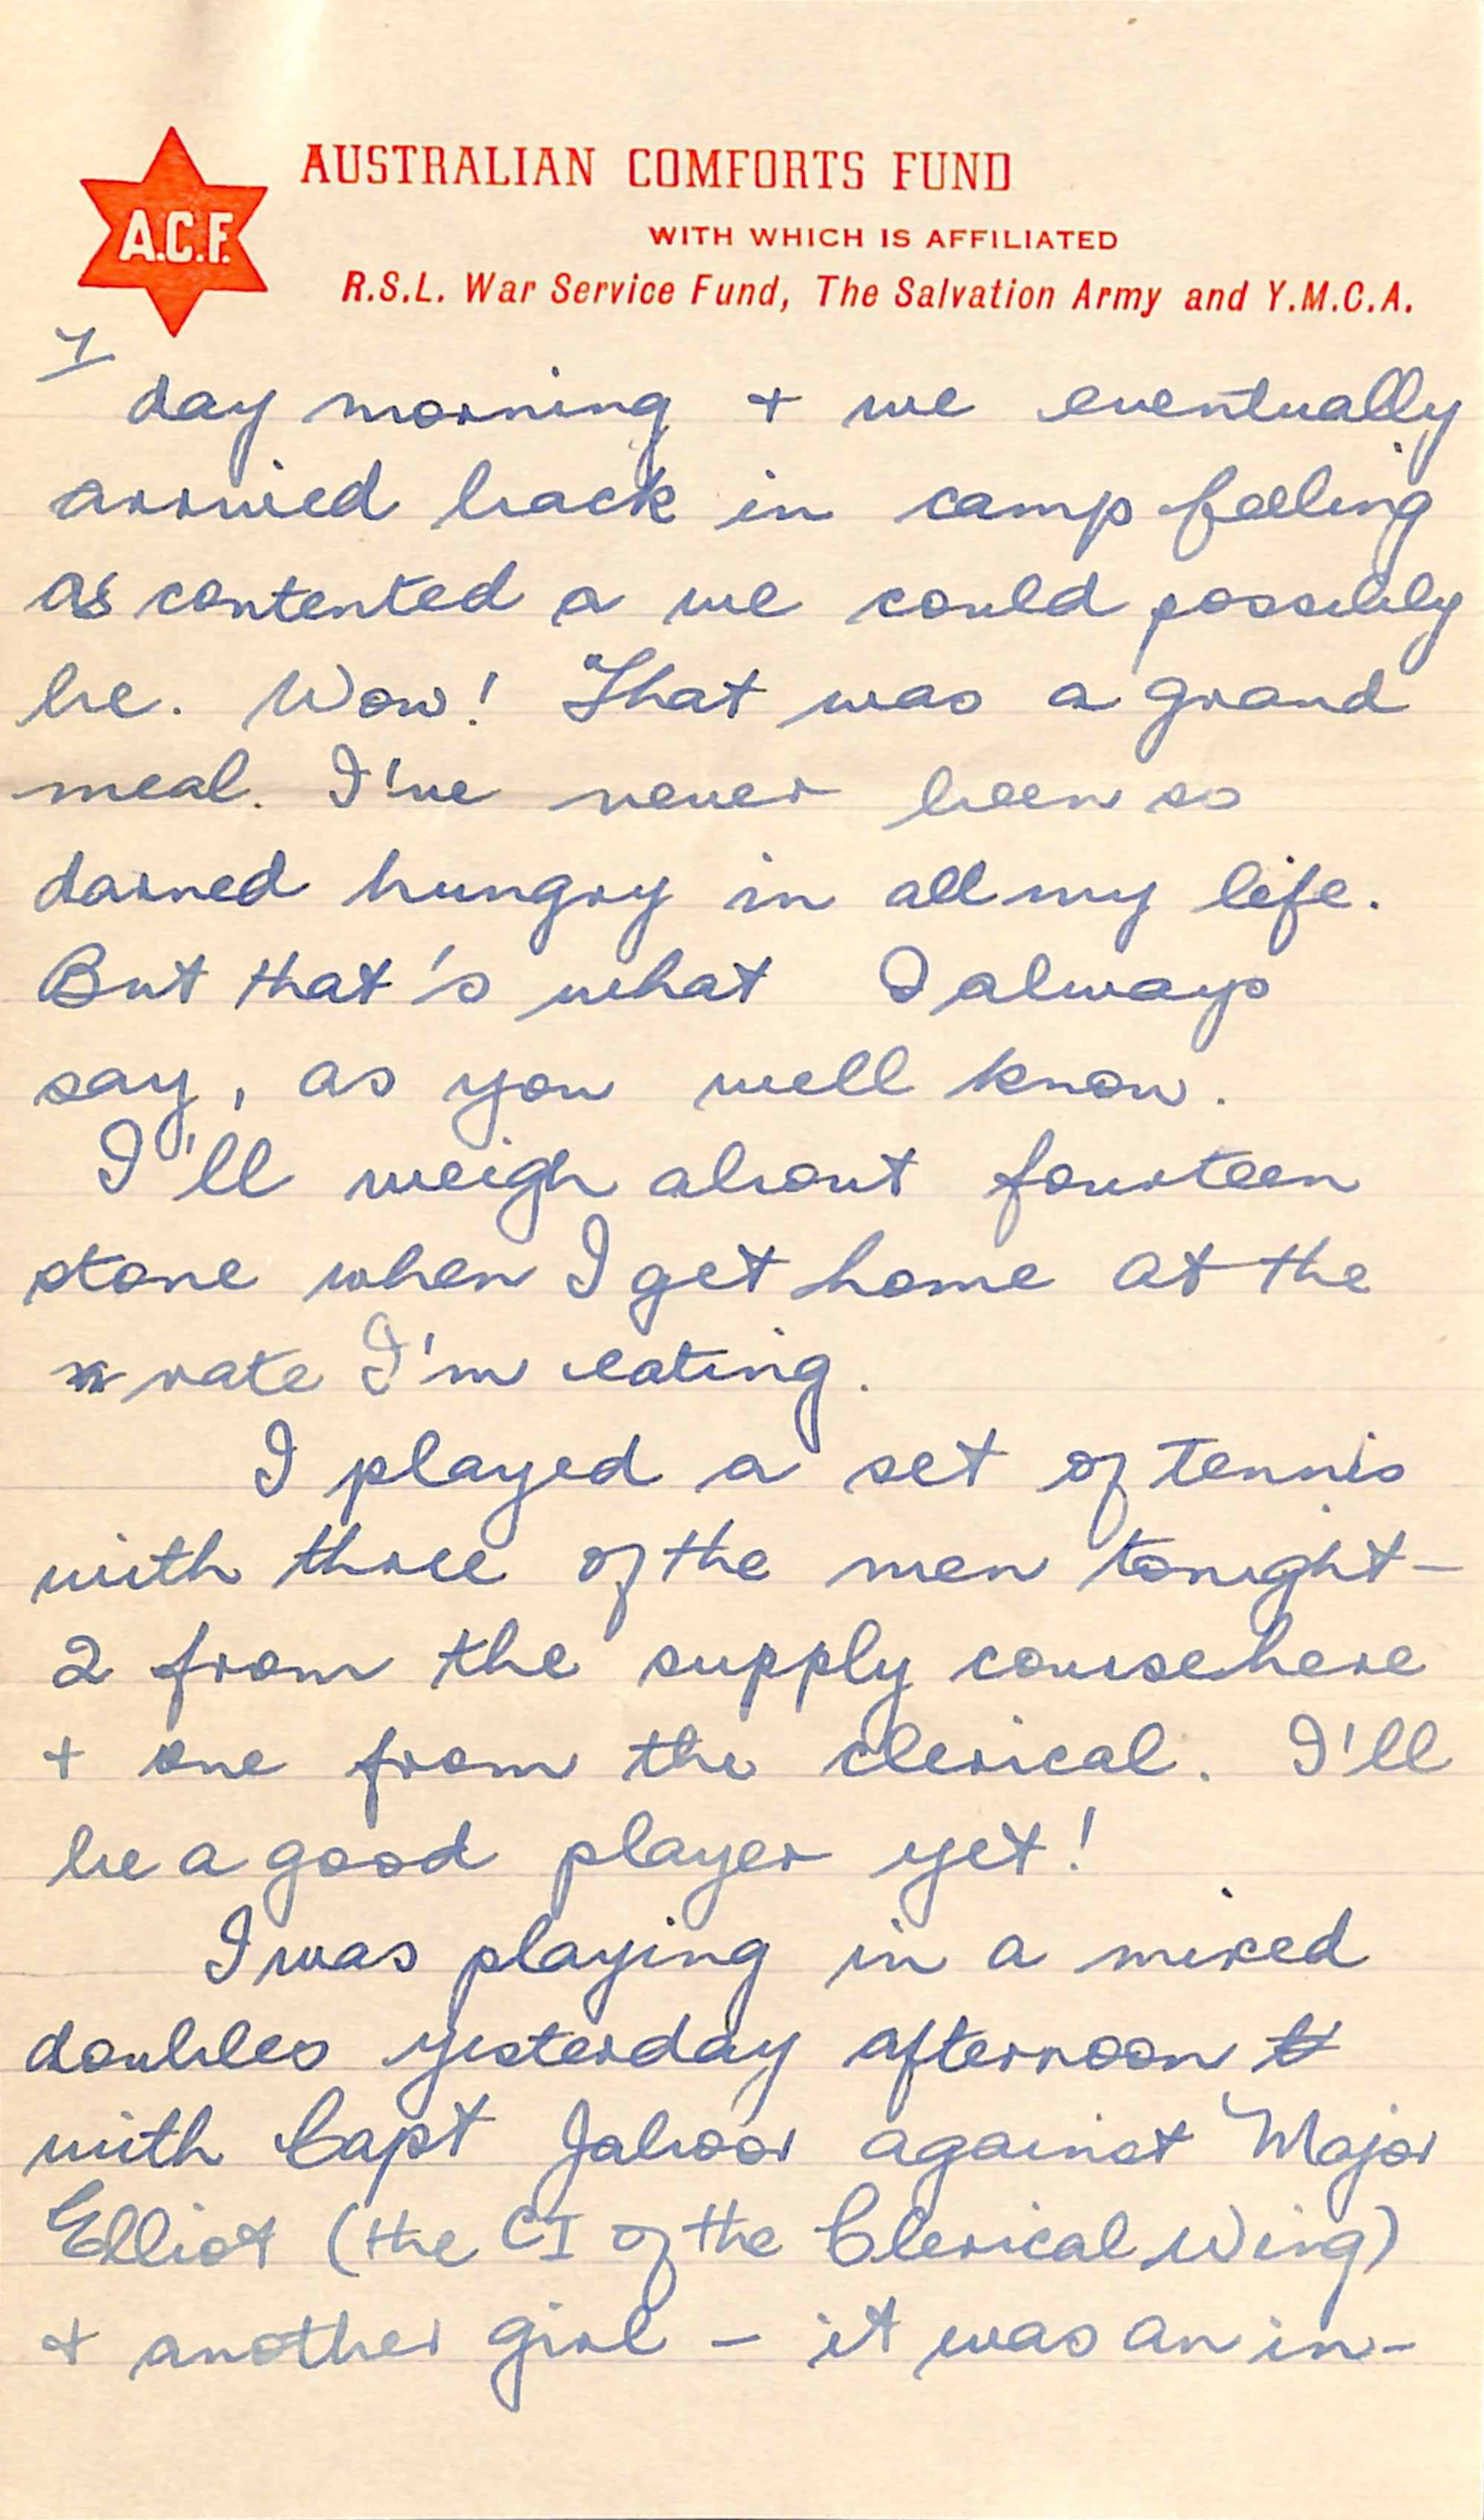 A.C.F.
AUSTRALIAN COMFORTS FUND
WITH WHICH IS AFFILIATED
R.S.L. War Service Fund, The Salvation Army and Y.M.C.A.
7
day morning + we eventually
arrived back in camp feeling
as contented a we could possibly
be. Wow! That was a grand
meal. I've never been so
darned hungry in all my life.
But that's what I always
say, as you well know.
I'll weigh about fourteen
stone when I get home at the
rate I'm eating.
I played a set of tennis
with three of the men tonight-
2 from the supply course here
+ one from the clerical. I'll
be a good player yet!
I was playing in a mixed
doubles yesterday afternoon
with Capt Jaboor against Major
Elliot (the CI of the Clerical Wing)
+ another girl - it was an in-